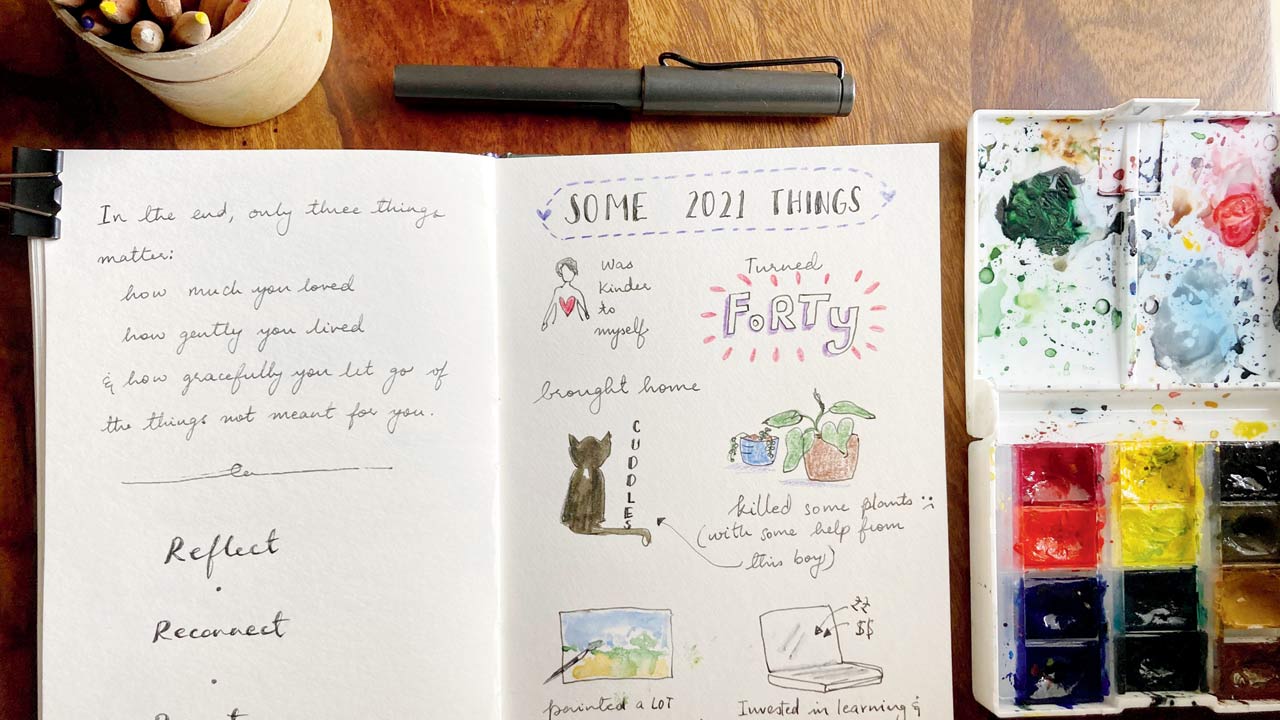 In the end, only three things
matter:
how much you loved
how gently you lived
& how gracefully you let go of
the things not meant for you.
Reflect
Reconnect
SOME 2021 THINGS
Was
kinder
to
myself
Turned
FORTY
brought home
CUDDLES
killed some plants :(
(with some help from
this boy)
$$
painted a LOT
Invested in learning &